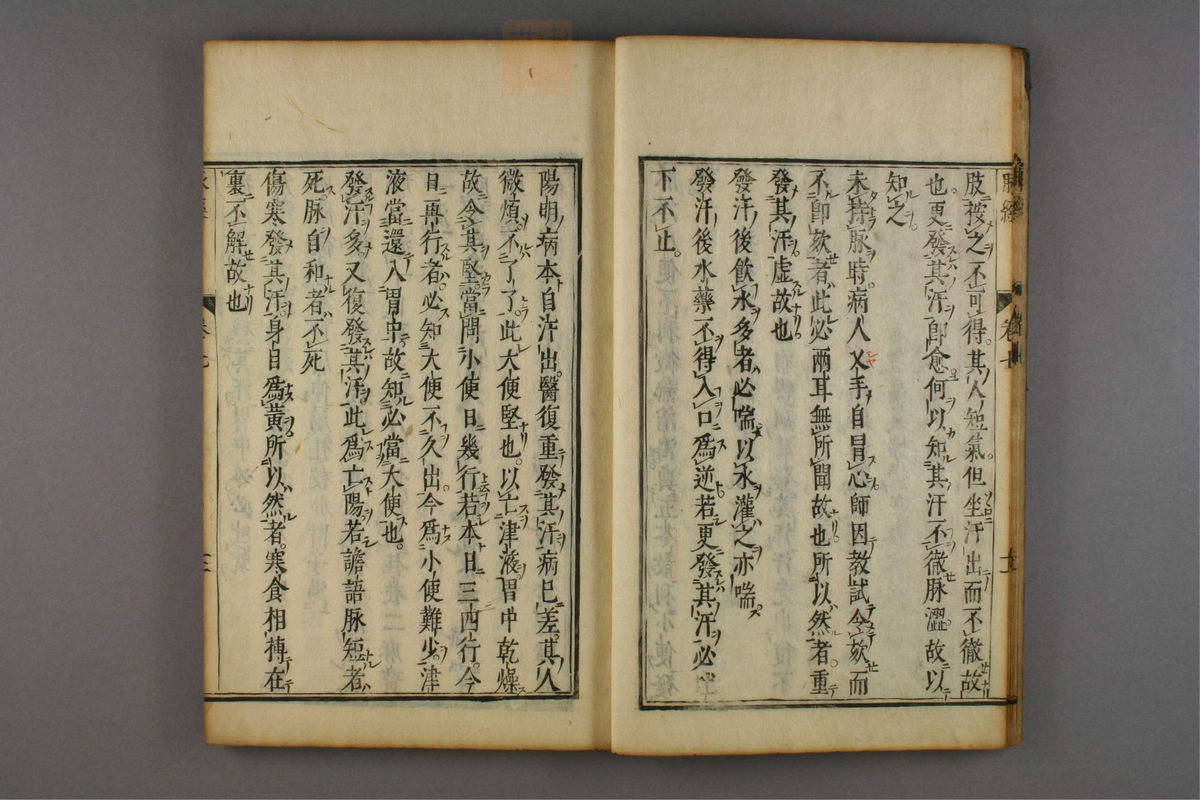 肢按之不可得其人短氣但坐汗出而不徹故
也更發其汗卽愈何以知其汗不徹脉澀故以
知之
未持脉時病人叉手自冒心師因教試令欬而
不卽欬者此必兩耳無所聞故也所以然者重
發其汗虛故也
發汗後飮水多者必喘以水灌之亦喘
發汗後水藥不得入口爲逆若更發其汗必
下不止
陽明病本自汗出醫復重發其汗病已差其人
微煩不了了此大便堅也以亡津液胃中乾燥
故令其堅當問小便日幾行若本日三四行今
日再行者必知大便不久出今爲小便難少津
液當還入胃中故知必當大便也
發汗多又復發其汗此爲亡陽若譫語脉短者
死脉自和者不死
傷寒發其汗身目爲黃所以然者寒食相摶在
裏不解故也